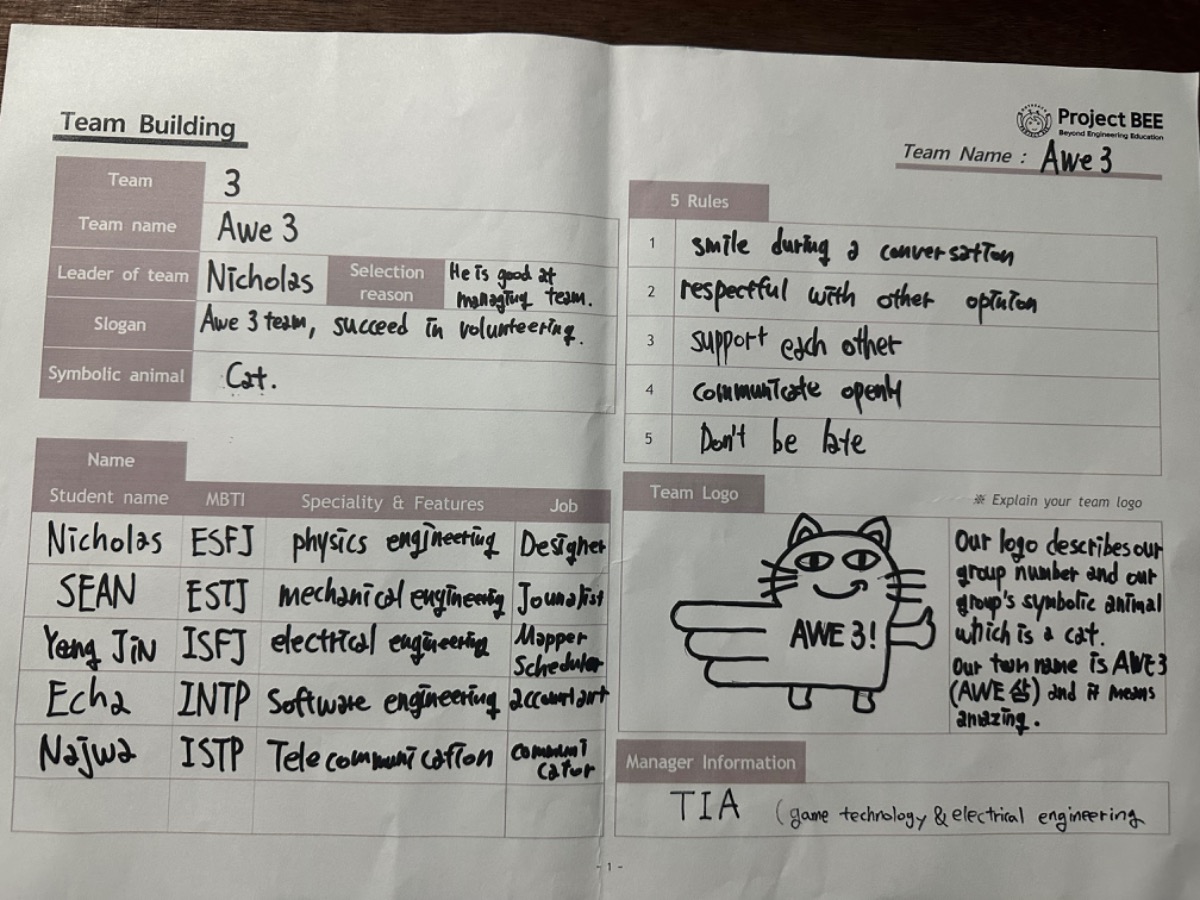 Team Building
Project BEE
Beyond Engineering Education
Team Name : Awe 3
Team 3
Team name Awe 3
Leader of team Nicholas Selection reason He is good at managing team.
Slogan Awe 3 team, succeed in volunteering.
Symbolic animal Cat.
Name
Student name MBTI Speciality & Features Job
Nicholas ESFJ physics engineering Designer
SEAN ESTJ mechanical engineering Jounalist
Yeng Jin ISFJ electrical engineering Mapper Scheduler
Echa INTP Software engineering accountant
Najwa ISTP Tele communication communi cator
5 Rules
1 smile during a conversation
2 respectful with other opinion
3 support each other
4 communicate openly
5 Don't be late
Team Logo
※ Explain your team logo
AWE 3!
Our logo describes our
group number and our
group's symbolic animal
which is a cat.
Our team name is AWE 3
(AWE 삼) and it means
amazing.
Manager Information
TIA (game technology & electrical engineering
- 1 -